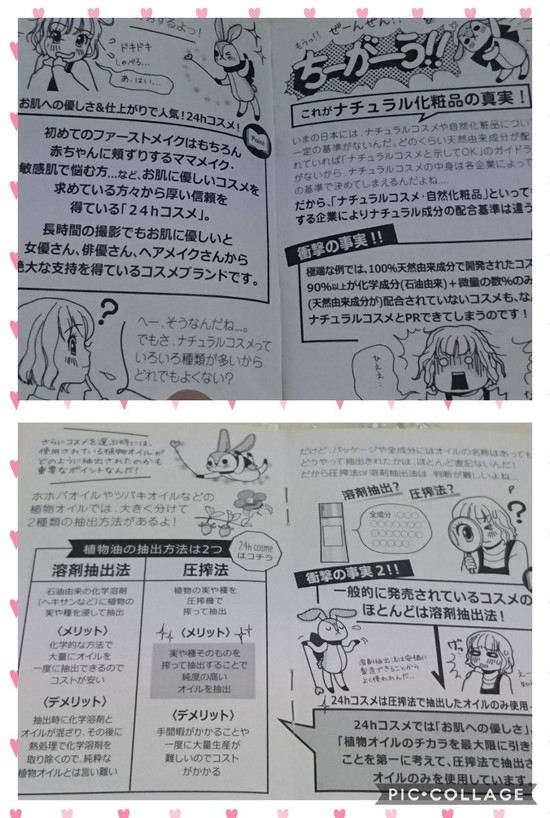 ドキドキ
しゃべる…
あ、はい…
お肌への優しさ&仕上がりで人気!24hコスメ!
Point
初めてのファーストメイクはもちろん
赤ちゃんに頬ずりするママメイク・
敏感肌で悩む方…など、お肌に優しいコスメを
求めている方々から厚い信頼を
得ている「24hコスメ」。
長時間の撮影でもお肌に優しいと
女優さん、俳優さん、ヘアメイクさんから
絶大な支持を得ているコスメブランドです。
?
へー、そうなんだね…。
でもさ、ナチュラルコスメって
いろいろ種類が多いから
どれでもよくない?
もうっ!!
ぜーんぜん!!
ちーがーう!!
これがナチュラル化粧品の真実!
いまの日本には、ナチュラルコスメや自然化粧品につい
一定の基準がないんだ。どのくらい天然由来成分が配
れていれば「ナチュラルコスメと示してOK」のガイドラ
がないから、ナチュラルコスメの中身は各企業によって
の基準で決めてしまえるんだよね…
だから、「ナチュラルコスメ・自然化粧品」といって
する企業によりナチュラル成分の配合基準は違う
衝撃の事実!!
極端な例では、100%天然由来成分で開発されたコス
90%以上が化学成分(石油由来)+微量の数%のみ
(天然由来成分が)配合されていないコスメも、な
ナチュラルコスメとPRできてしまうのです!
ひえぇ…
さらにコスメを選ぶ時には、
使用されている植物オイルが
どのように抽出されたのかも
重要なポイントなんだ!
ホホバオイルやツバキオイルなどの
植物オイルでは、大きく分けて
2種類の抽出方法があるよ!
植物油の抽出方法は2つ
24h cosme
はコチラ
溶剤抽出法
石油由来の化学溶剤
(ヘキサンなど)に植物の
実や種を浸して抽出
〈メリット〉
化学的な方法で
大量にオイルを
一度に抽出できるので
コストが安い
〈デメリット〉
抽出時に化学溶剤と
オイルが混ざり、その後に
熱処理で化学溶剤を
取り除くので、純粋な
植物オイルとは言い難い
圧搾法
植物の実や種を
圧搾機で
搾って抽出
〈メリット〉
実や種そのものを
搾って抽出することで
純度の高い
オイルを抽出
〈デメリット〉
手間暇がかかることや
一度に大量生産が
難しいのでコスト
がかかる
だけど、パッケージや全成分にはオイルの名称はあっても
どうやって抽出されたかは、ほとんど表記ないんだ!
だから圧搾法or溶剤抽出法は、判断が難しいよね…
溶剤抽出? 圧搾法?
全成分
?
衝撃の事実2!!
一般的に発売されているコスメの
ほとんどは溶剤抽出法!
溶剤抽出法は安価に
製造できることから
よく使われんだ…
24hコスメは圧搾法で抽出したオイルのみ使用
24hコスメでは「お肌への優しさ」
「植物オイルのチカラを最大限に引き
ことを第一に考えて、圧搾法で抽出さ
オイルのみを使用しています
PIC•COLLAGE